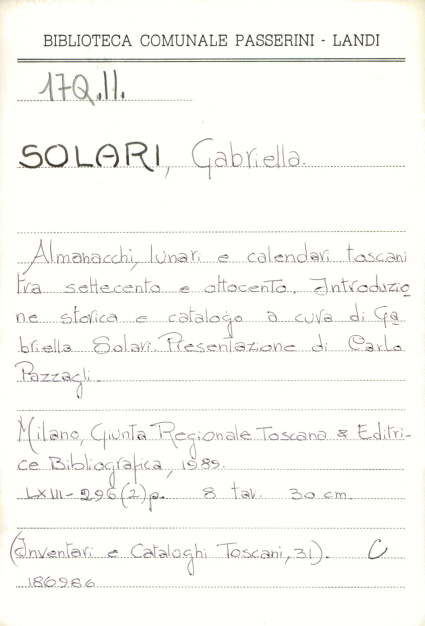 BIBLIOTECA COMUNALE PASSERINI - LANDI
17Q.II.
SOLARI, Gabriella.
Almanacchi, lunari e calendari toscani
tra settecento e ottocento. Introduzio
ne storica e catalogo a cura di Ga
briella Solari. Presentazione di Carlo
Pazzagli.
Milano, Giunta Regionale Toscana & Editri-
ce Bibliografica, 1989.
LXIII-296(2)p. 8 tav. 30 cm.
(Inventari e Cataloghi Toscani, 31). C
186986